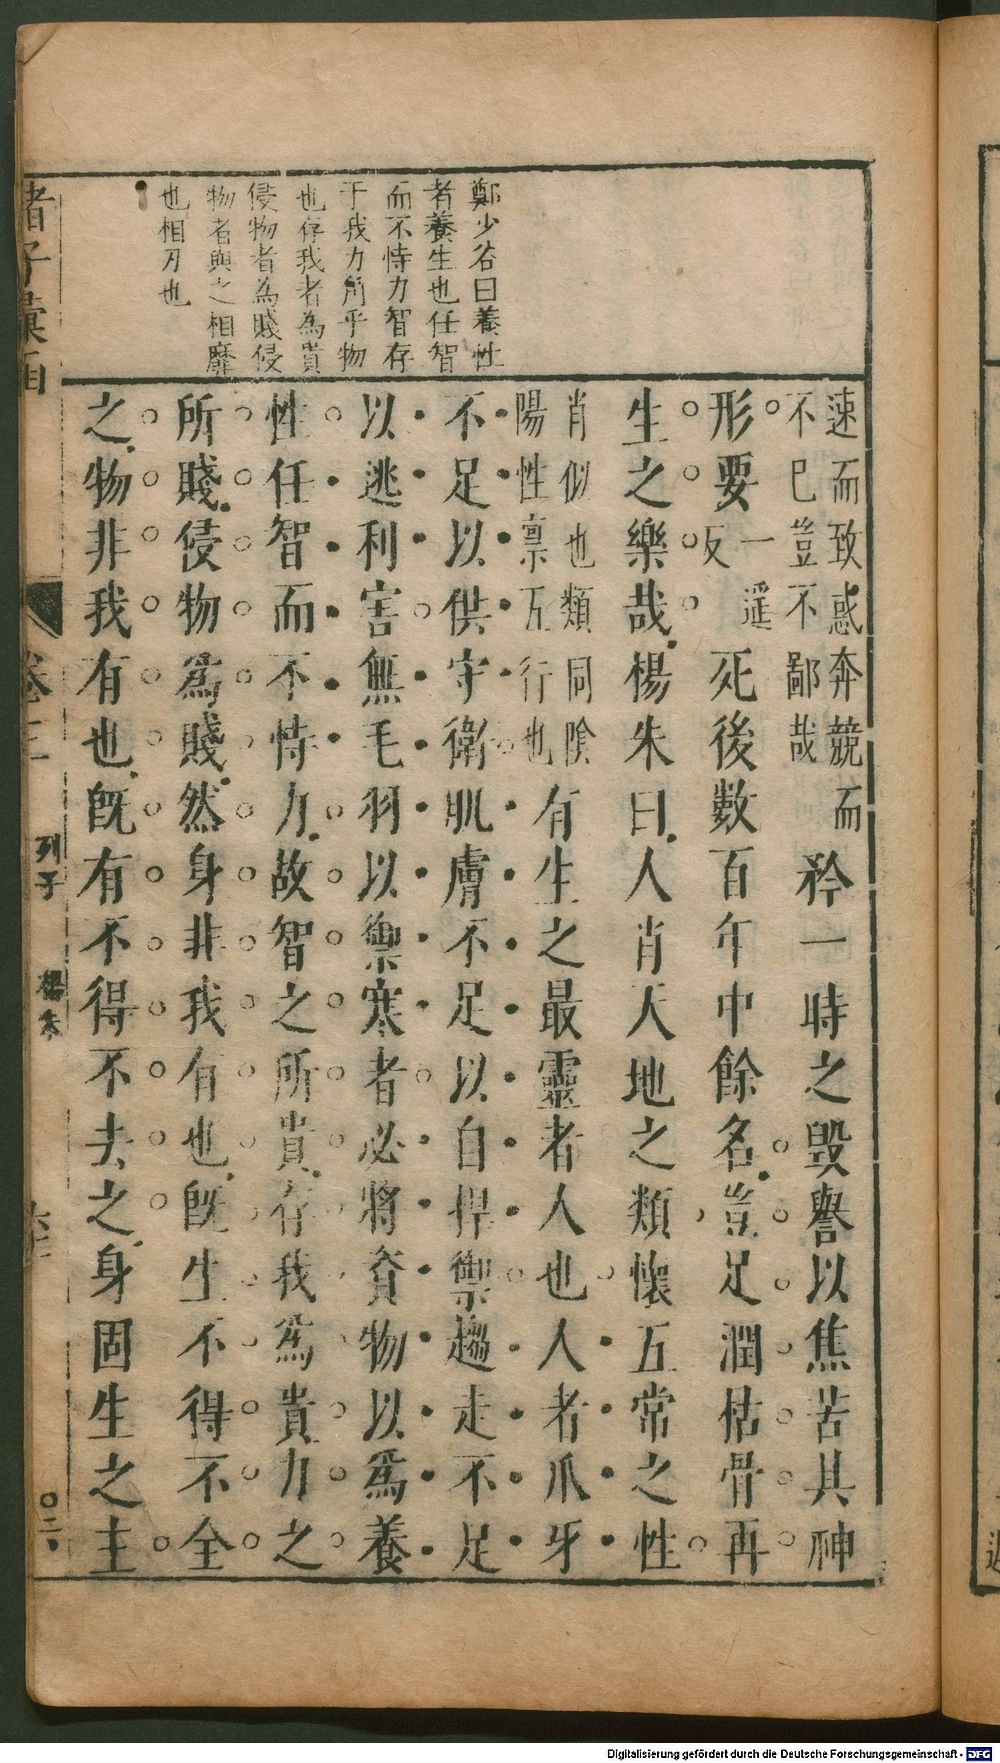 鄭少谷曰養性
者養生也任智
而不恃力智存
于我力角乎物
也存我者為貴
侵物者為賤侵
物者與之相靡
也相刃也
速而致惑奔競而
不已豈不鄙哉
矜一時之毀譽以焦苦其神
形要
一遥
反
死後數百年中餘名豈足潤枯骨再
生之樂哉楊朱曰人肖天地之類懷五常之性
肖似也類同陰
陽性禀五行也
有生之最靈者人也人者爪牙
不足以供守衛肌膚不足以自捍禦趨走不足
以逃利害無毛羽以禦寒者必將資物以爲養
性任智而不恃力故智之所貴存我爲貴力之
所賤侵物爲賤然身非我有也旣生不得不全
之物非我有也旣有不得不去之身固生之主
諸子彙函
卷二
列子
楊朱
〇二
Digitalisierung gefördert durch die Deutsche Forschungsgemeinschaft - DFG